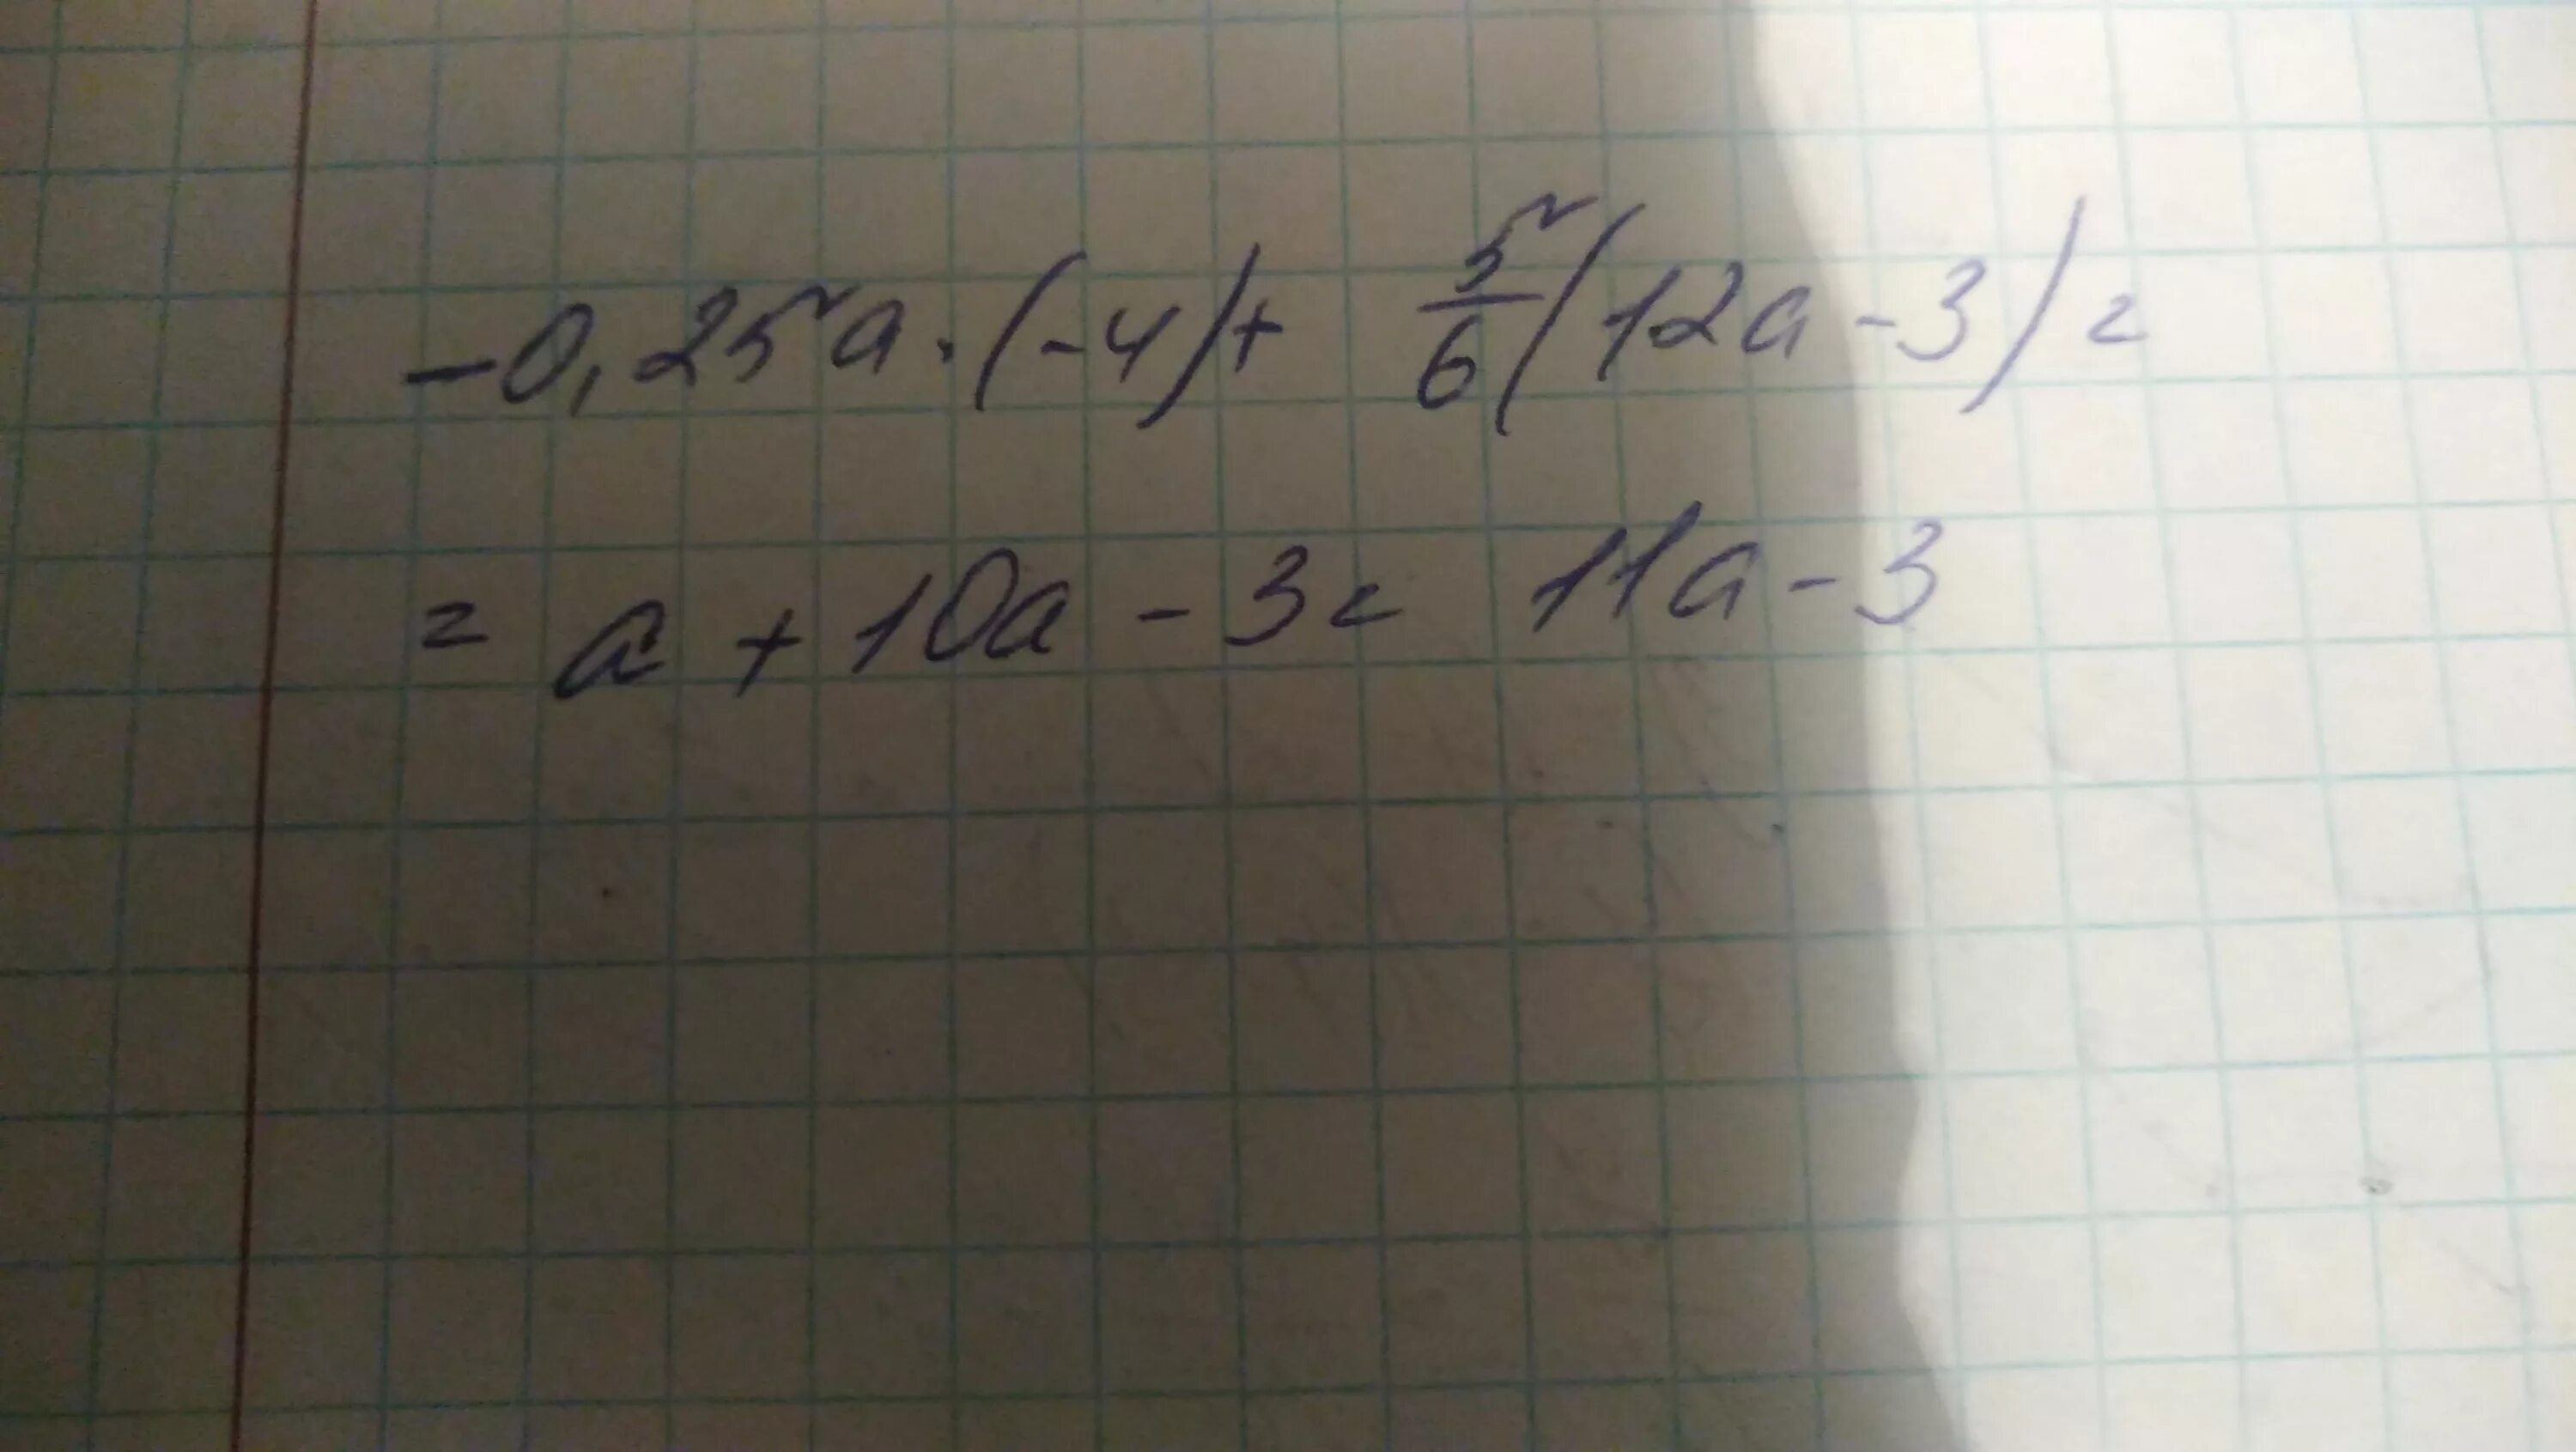 -0,25a·(-4)+ 5/6(12a-3)=
= a+10a-3= 11a-3